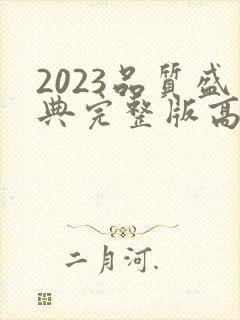 2023品質盛
典完整版高
二月河.